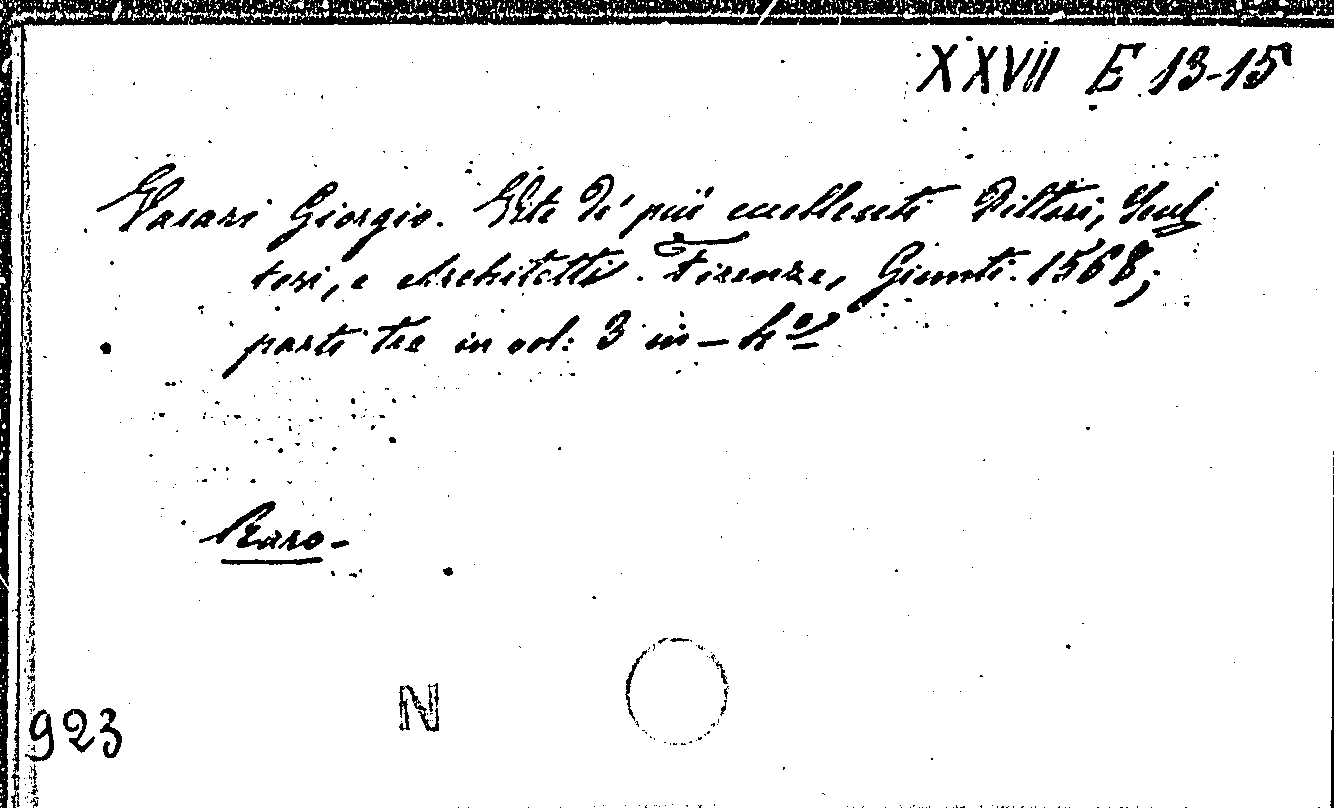 XXVII E 13-15
Vasari Giorgio. Vite de' più eccellenti Pittori, Scul
tori, e Architetti. Firenze, Giunti. 1568;
parti tre in vol: 3 in-4º
Raro-
N
923